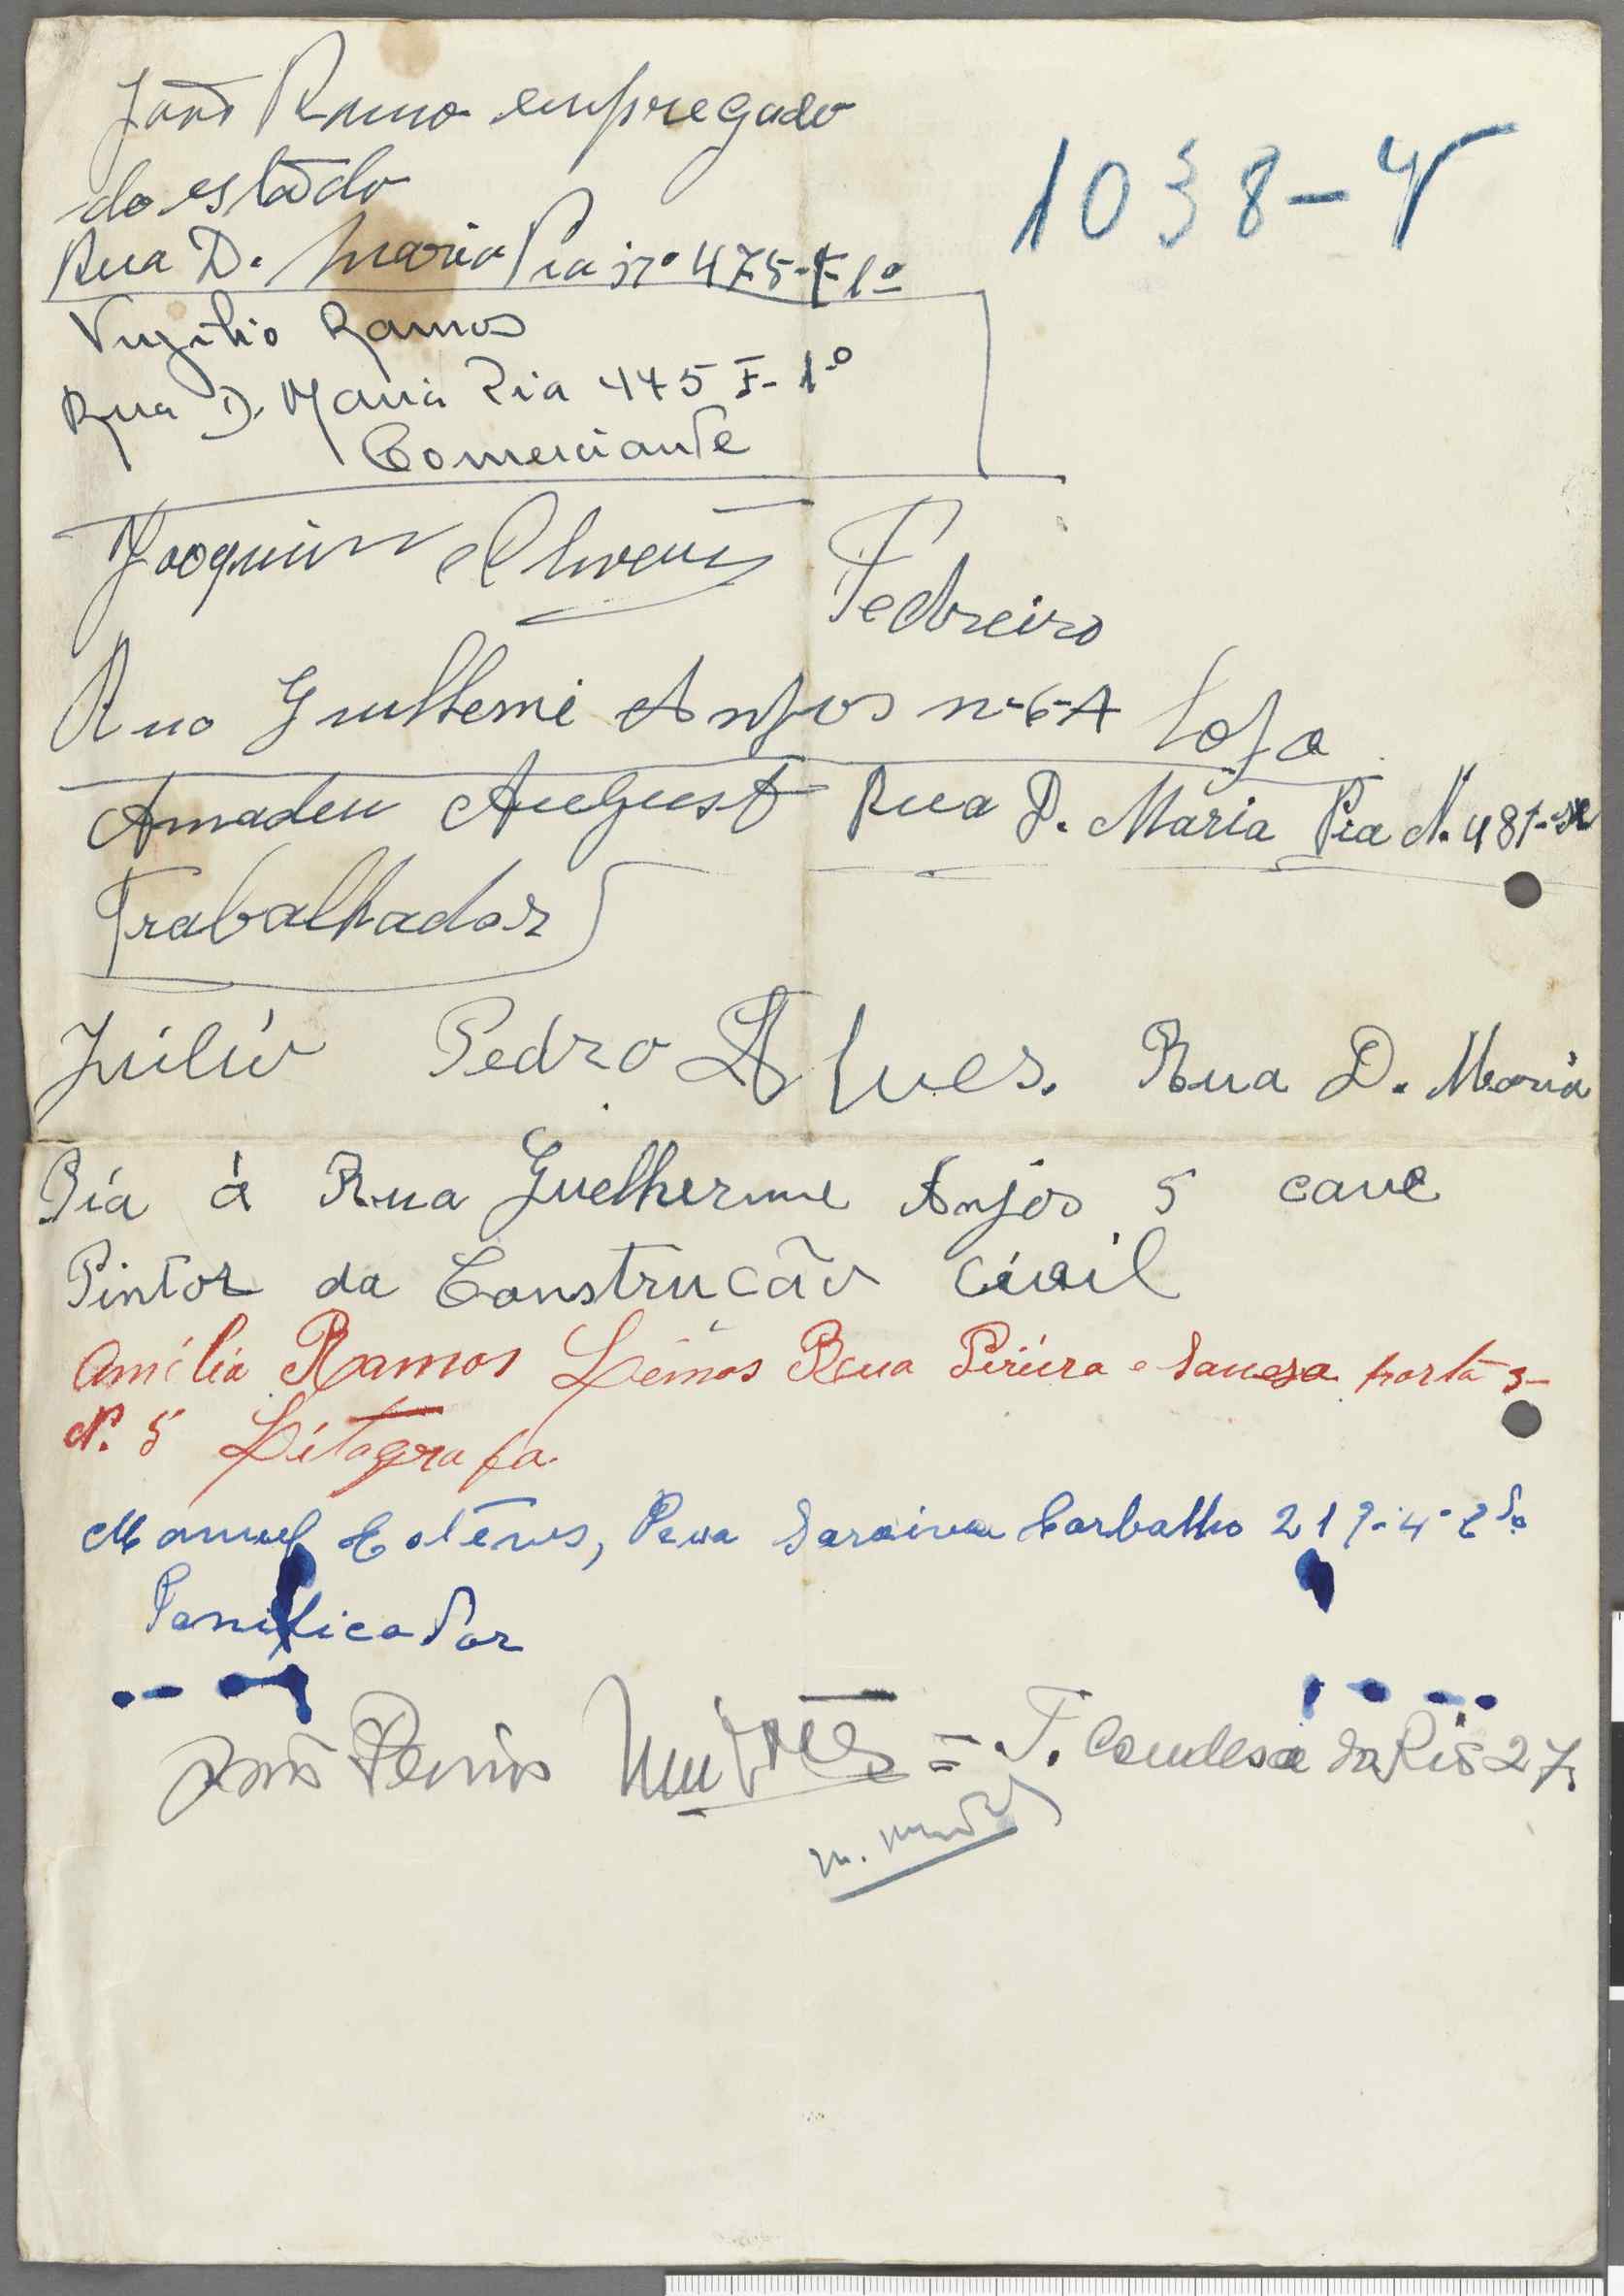 João Ramos empregado
do estado
1038-V
Rua D. Maria Pia nº 475-F-1º
Virgilio Ramos
Rua D. Maria Pia 475 F- 1º
Comerciante
Joaquim Oliveira Pedreiro
Rua Guilherme Anjos n-6-A loja
Amadeu August Rua D. Maria Pia N. 481-
Trabalhador
Júlio Pedro Alves. Rua D. Maria
Pía á Rua Guelherme Anjos 5 cave
Pintor da Construcão Cívil
Amilia Ramos Lemos Rua porta 3-
Nº. 5 Litografa
Manuel Esteves, Rua Saraiva Carbalho 217-4-
Panificador
= T. Condesa do Rio 27.